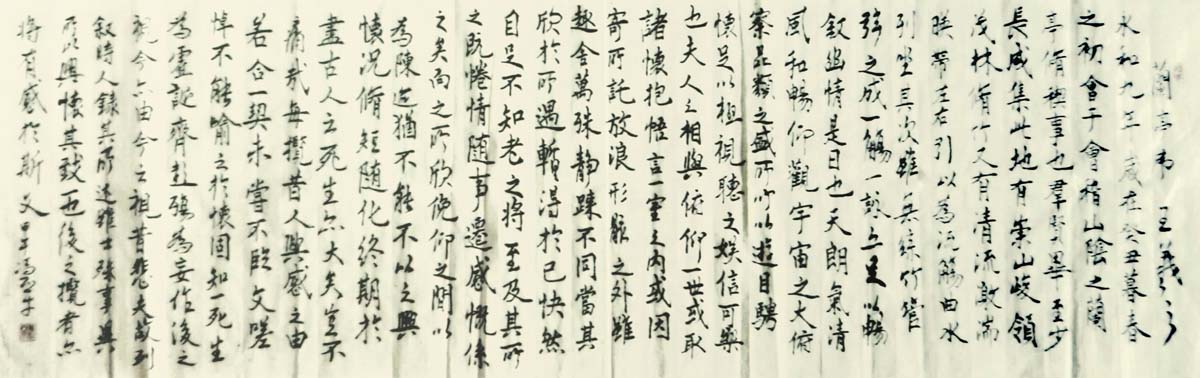 蘭亭序 王羲之
永和九年歲在癸丑暮春
之初會于會稽山陰之蘭
亭脩禊事也羣賢畢至少
長咸集此地有崇山峻領
茂林脩竹又有清流激湍
暎帶左右引以為流觴曲水
列坐其次雖無絲竹管
弦之盛一觴一詠亦足以暢
敘幽情是日也天朗氣清
風和暢仰觀宇宙之大俯
察品類之盛所所以遊目騁
懷足以極視聽之娛信可樂
也夫人之相與俯仰一世或取
諸懷抱悟言一室之內或因
寄所託放浪形骸之外雖
趣舍萬殊靜躁不同當其
欣於所遇暫得於己快然
自足不知老之將至及其所
之既惓情隨事遷感慨係
之矣向之所欣俛仰之間以
為陳迹猶不能不以之興
懷況脩短隨化終期於
盡古人云死生亦大矣豈不
痛哉每攬昔人興感之由
若合一契未嘗不臨文嗟
悼不能喻之於懷固知一死生
為虛誕齊彭殤為妄作後之
視今亦由今之視昔悲夫故列
敘時人錄其所述雖世殊事異
所以興懷其致一也後之攬者亦
將有感於斯文 甲午